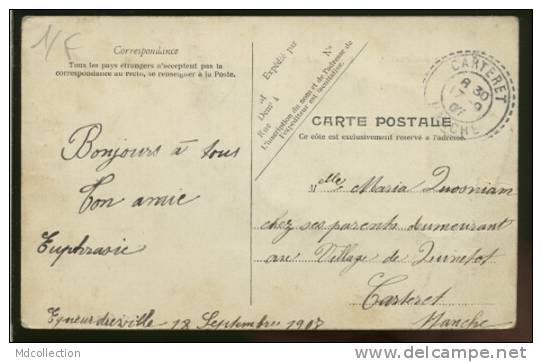 N/F
Correspondance
Tous les pays étrangers n'acceptent pas la
correspondance au recto, se renseigner à la Poste.
Bonjours à tous
Ton amie
Euphrasie
Expédié par
M
Dem t à
Rue
N°
L'inscription du nom et de l'adresse de
l'expéditeur est facultative.
CARTERET
8 30
17 - 9
07
MANCHE
CARTE POSTALE
Ce côté est exclusivement reservé à l'adresse.
Melle Maria Quosniam
chez ses parents dumeurant
au Village de Quinetot
Carteret
Manche
18 Septembre 1907
Mdcollection
www.delcampe.net